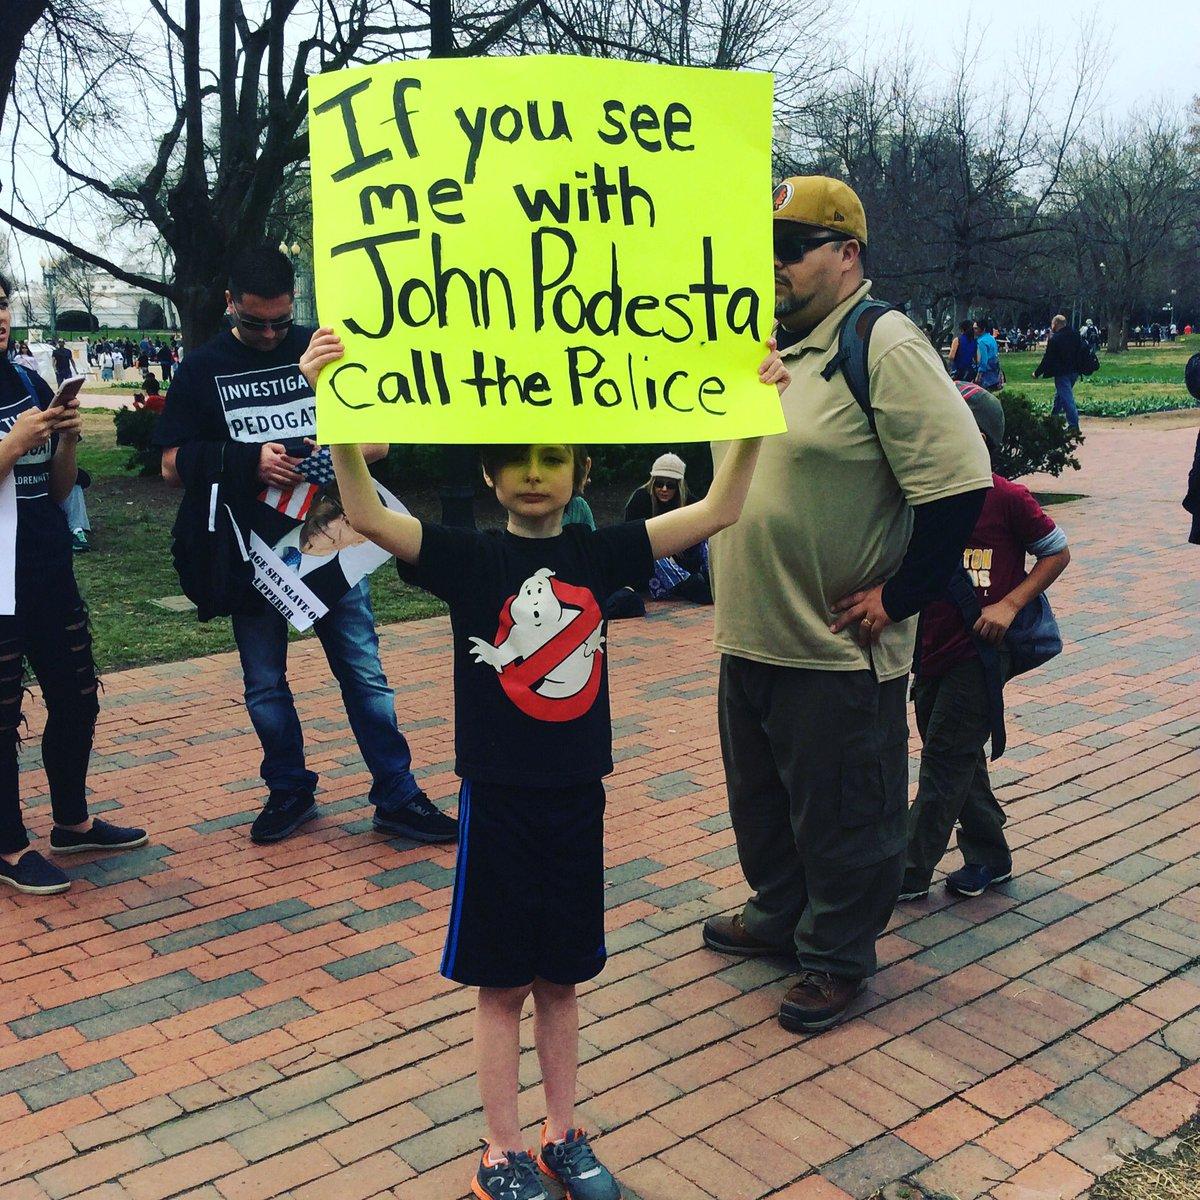 If you see
me with
John Podesta
call the Police
INVESTIGA
PEDOGAT
AGE SEX SLAVE O
UPPERER
TON